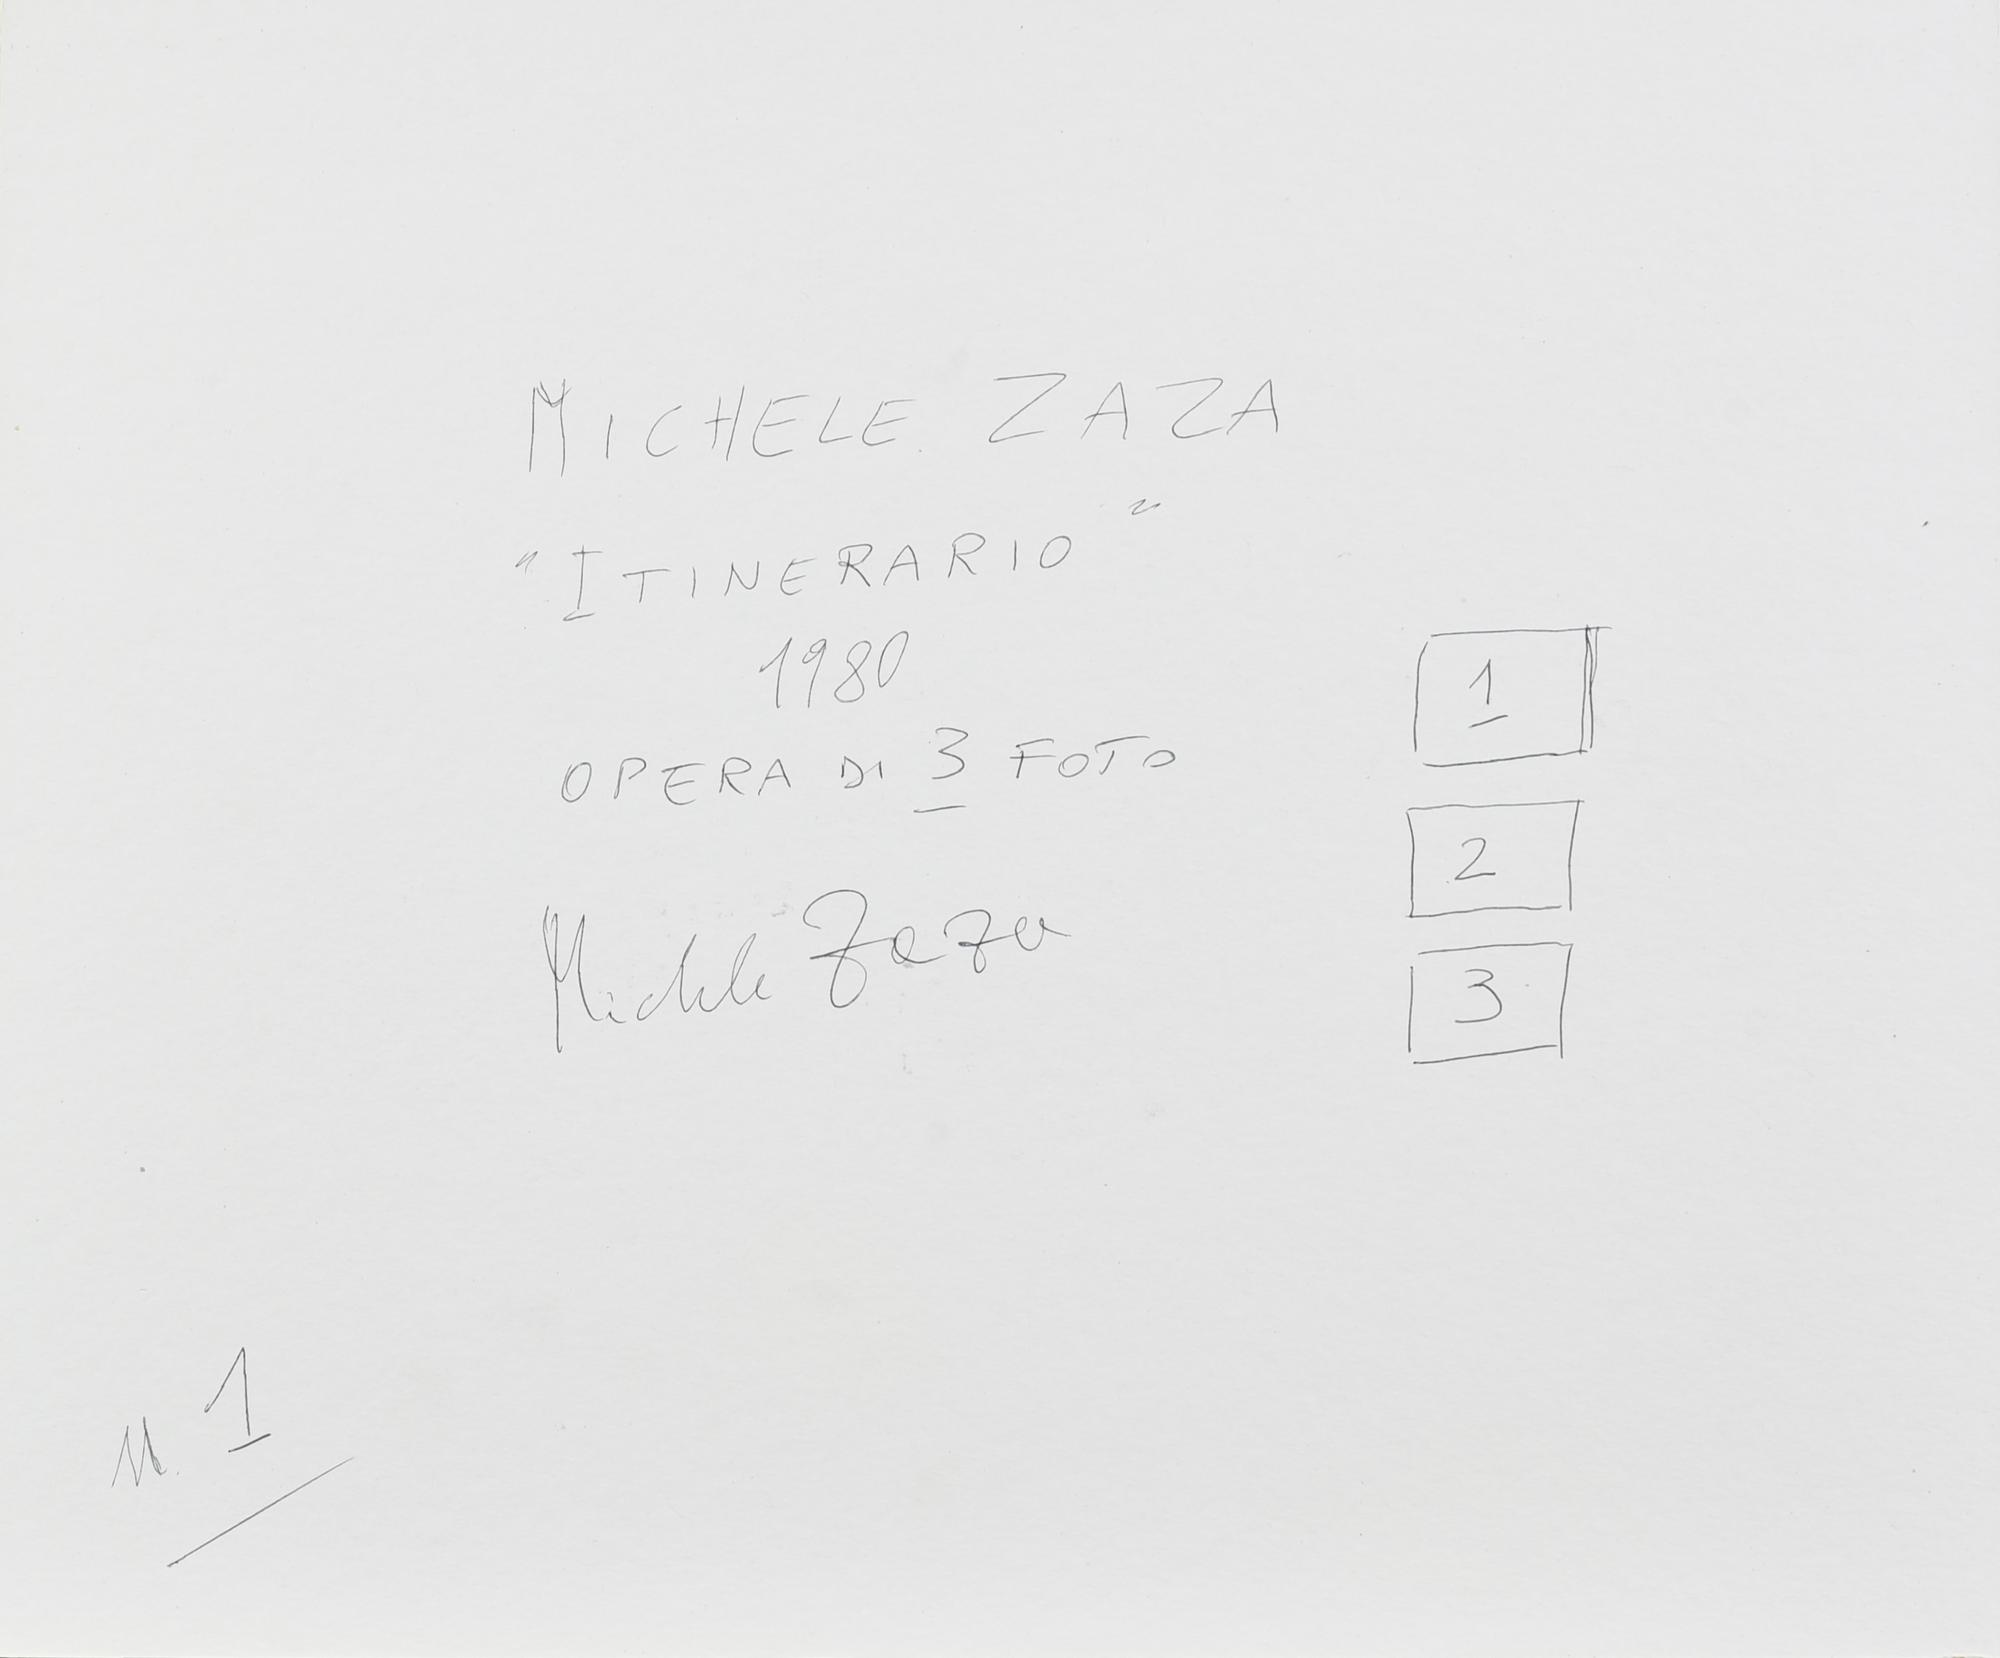 MICHELE ZAZA
"ITINERARIO"
1980
OPERA DI 3 FOTO
Michele Zaza
1
2
3
N. 1